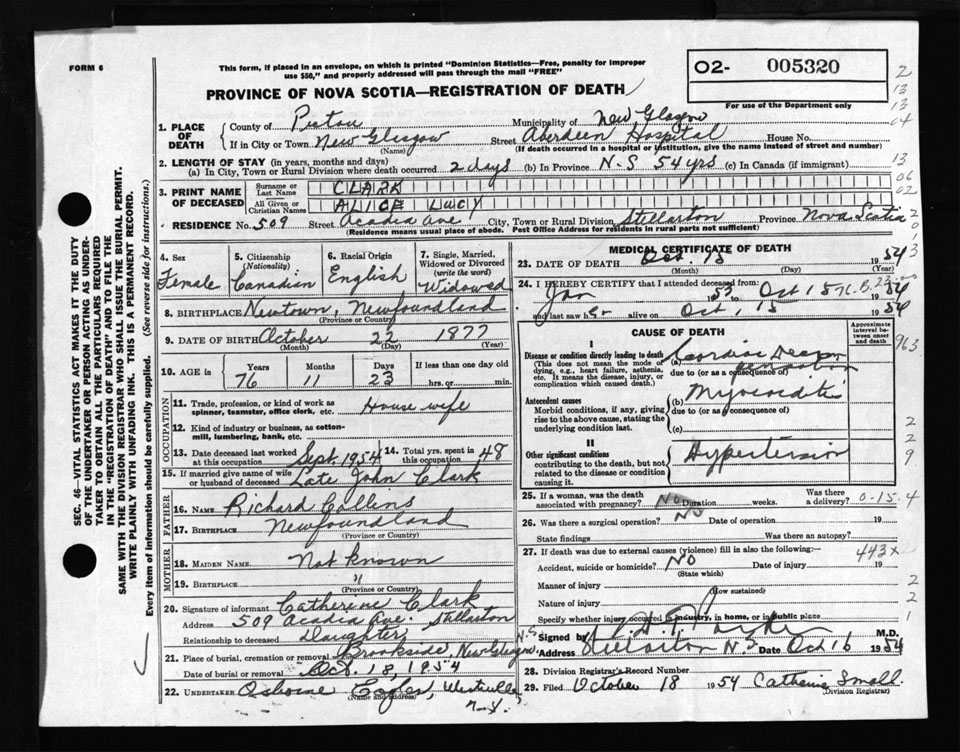 FORM 6
This form, if placed in an envelope, on which is printed "Dominion Statistics—Free, penalty for improper
use $50," and properly addressed will pass through the mail "FREE"
PROVINCE OF NOVA SCOTIA—REGISTRATION OF DEATH
02- 005320
For use of the Department only
1. PLACE OF DEATH
County of Pictou Municipality of New Glasgow
If in City or Town New Glasgow Street Aberdeen Hospital House No.
(Name) (If death occurred in a hospital or institution, give the name instead of street and number)
2. LENGTH OF STAY (in years, months and days)
(a) In City, Town or Rural Division where death occurred 2 days (b) In Province N-S 54 yrs (c) In Canada (if immigrant)
3. PRINT NAME OF DECEASED
Surname or Last Name CLARK
All Given or Christian Names ALICE LUCY
RESIDENCE No. 509 Street Acadia Ave City, Town or Rural Division Stellarton Province Nova Scotia
(Residence means usual place of abode. Post Office Address for residents in rural parts not sufficient)
4. Sex Female
5. Citizenship (Nationality) Canadian
6. Racial Origin English
7. Single, Married, Widowed or Divorced (write the word) Widowed
8. BIRTHPLACE Newtown, Newfoundland
(Province or Country)
9. DATE OF BIRTH October 22 1877
(Month) (Day) (Year)
10. AGE in Years 76 Months 11 Days 23 If less than one day old hrs. or min.
OCCUPATION
11. Trade, profession, or kind of work as spinner, teamster, office clerk, etc. House wife
12. Kind of industry or business, as cotton-mill, lumbering, bank, etc.
13. Date deceased last worked at this occupation Sept. 1954
14. Total yrs. spent in this occupation 48
15. If married give name of wife or husband of deceased Late John Clark
FATHER
16. Name Richard Collins
17. Birthplace Newfoundland
(Province or Country)
MOTHER
18. Maiden Name Not Known
19. Birthplace "
(Province or Country)
20. Signature of informant Catherine Clark
Address 509 Acadia Ave. Stellarton
Relationship to deceased Daughter
21. Place of burial, cremation or removal Brookside, New Glasgow N.S
Date of burial or removal Oct. 18, 1954
22. UNDERTAKER Osborne Eagles, Westville
(Name and address)
MEDICAL CERTIFICATE OF DEATH
23. DATE OF DEATH Oct. 15 1954
(Month) (Day) (Year)
24. I HEREBY CERTIFY that I attended deceased from:
Jan 1953 to Oct 15 1954
and last saw her alive on Oct, 15 1954
CAUSE OF DEATH
Approximate interval between onset and death
I
Disease or condition directly leading to death
(This does not mean the mode of dying, e.g., heart failure, asthenia, etc. It means the disease, injury, or complication which caused death.)
(a) Cardiac Decompensation
due to (or as a consequence of)
Antecedent causes
Morbid conditions, if any, giving rise to the above cause, stating the underlying condition last.
(b) Myocarditis
due to (or as consequence of)
(c)
II
Other significant conditions
contributing to the death, but not related to the disease or condition causing it.
Hypertension
25. If a woman, was the death associated with pregnancy? No Duration weeks. Was there a delivery? 0-15-4
26. Was there a surgical operation? No Date of operation 19
State findings Was there an autopsy?
27. If death was due to external causes (violence) fill in also the following:— 443x
Accident, suicide or homicide? No Date of injury 19
(State which)
Manner of injury
(How sustained)
Nature of injury
Specify whether injury occurred in industry, in home, or in public place
Signed by M.D.
Address Stellarton N.S Date Oct 16 1954
28. Division Registrar's Record Number
29. Filed October 18 1954 Catherine Small.
(Division Registrar)
SEC. 46—VITAL STATISTICS ACT MAKES IT THE DUTY
OF THE UNDERTAKER OR PERSON ACTING AS UNDER-
TAKER TO OBTAIN ALL THE PARTICULARS REQUIRED
IN THE "REGISTRATION OF DEATH" AND TO FILE THE
SAME WITH THE DIVISION REGISTRAR WHO SHALL ISSUE THE BURIAL PERMIT.
WRITE PLAINLY WITH UNFADING INK. THIS IS A PERMANENT RECORD.
Every item of information should be carefully supplied. (See reverse side for instructions.)